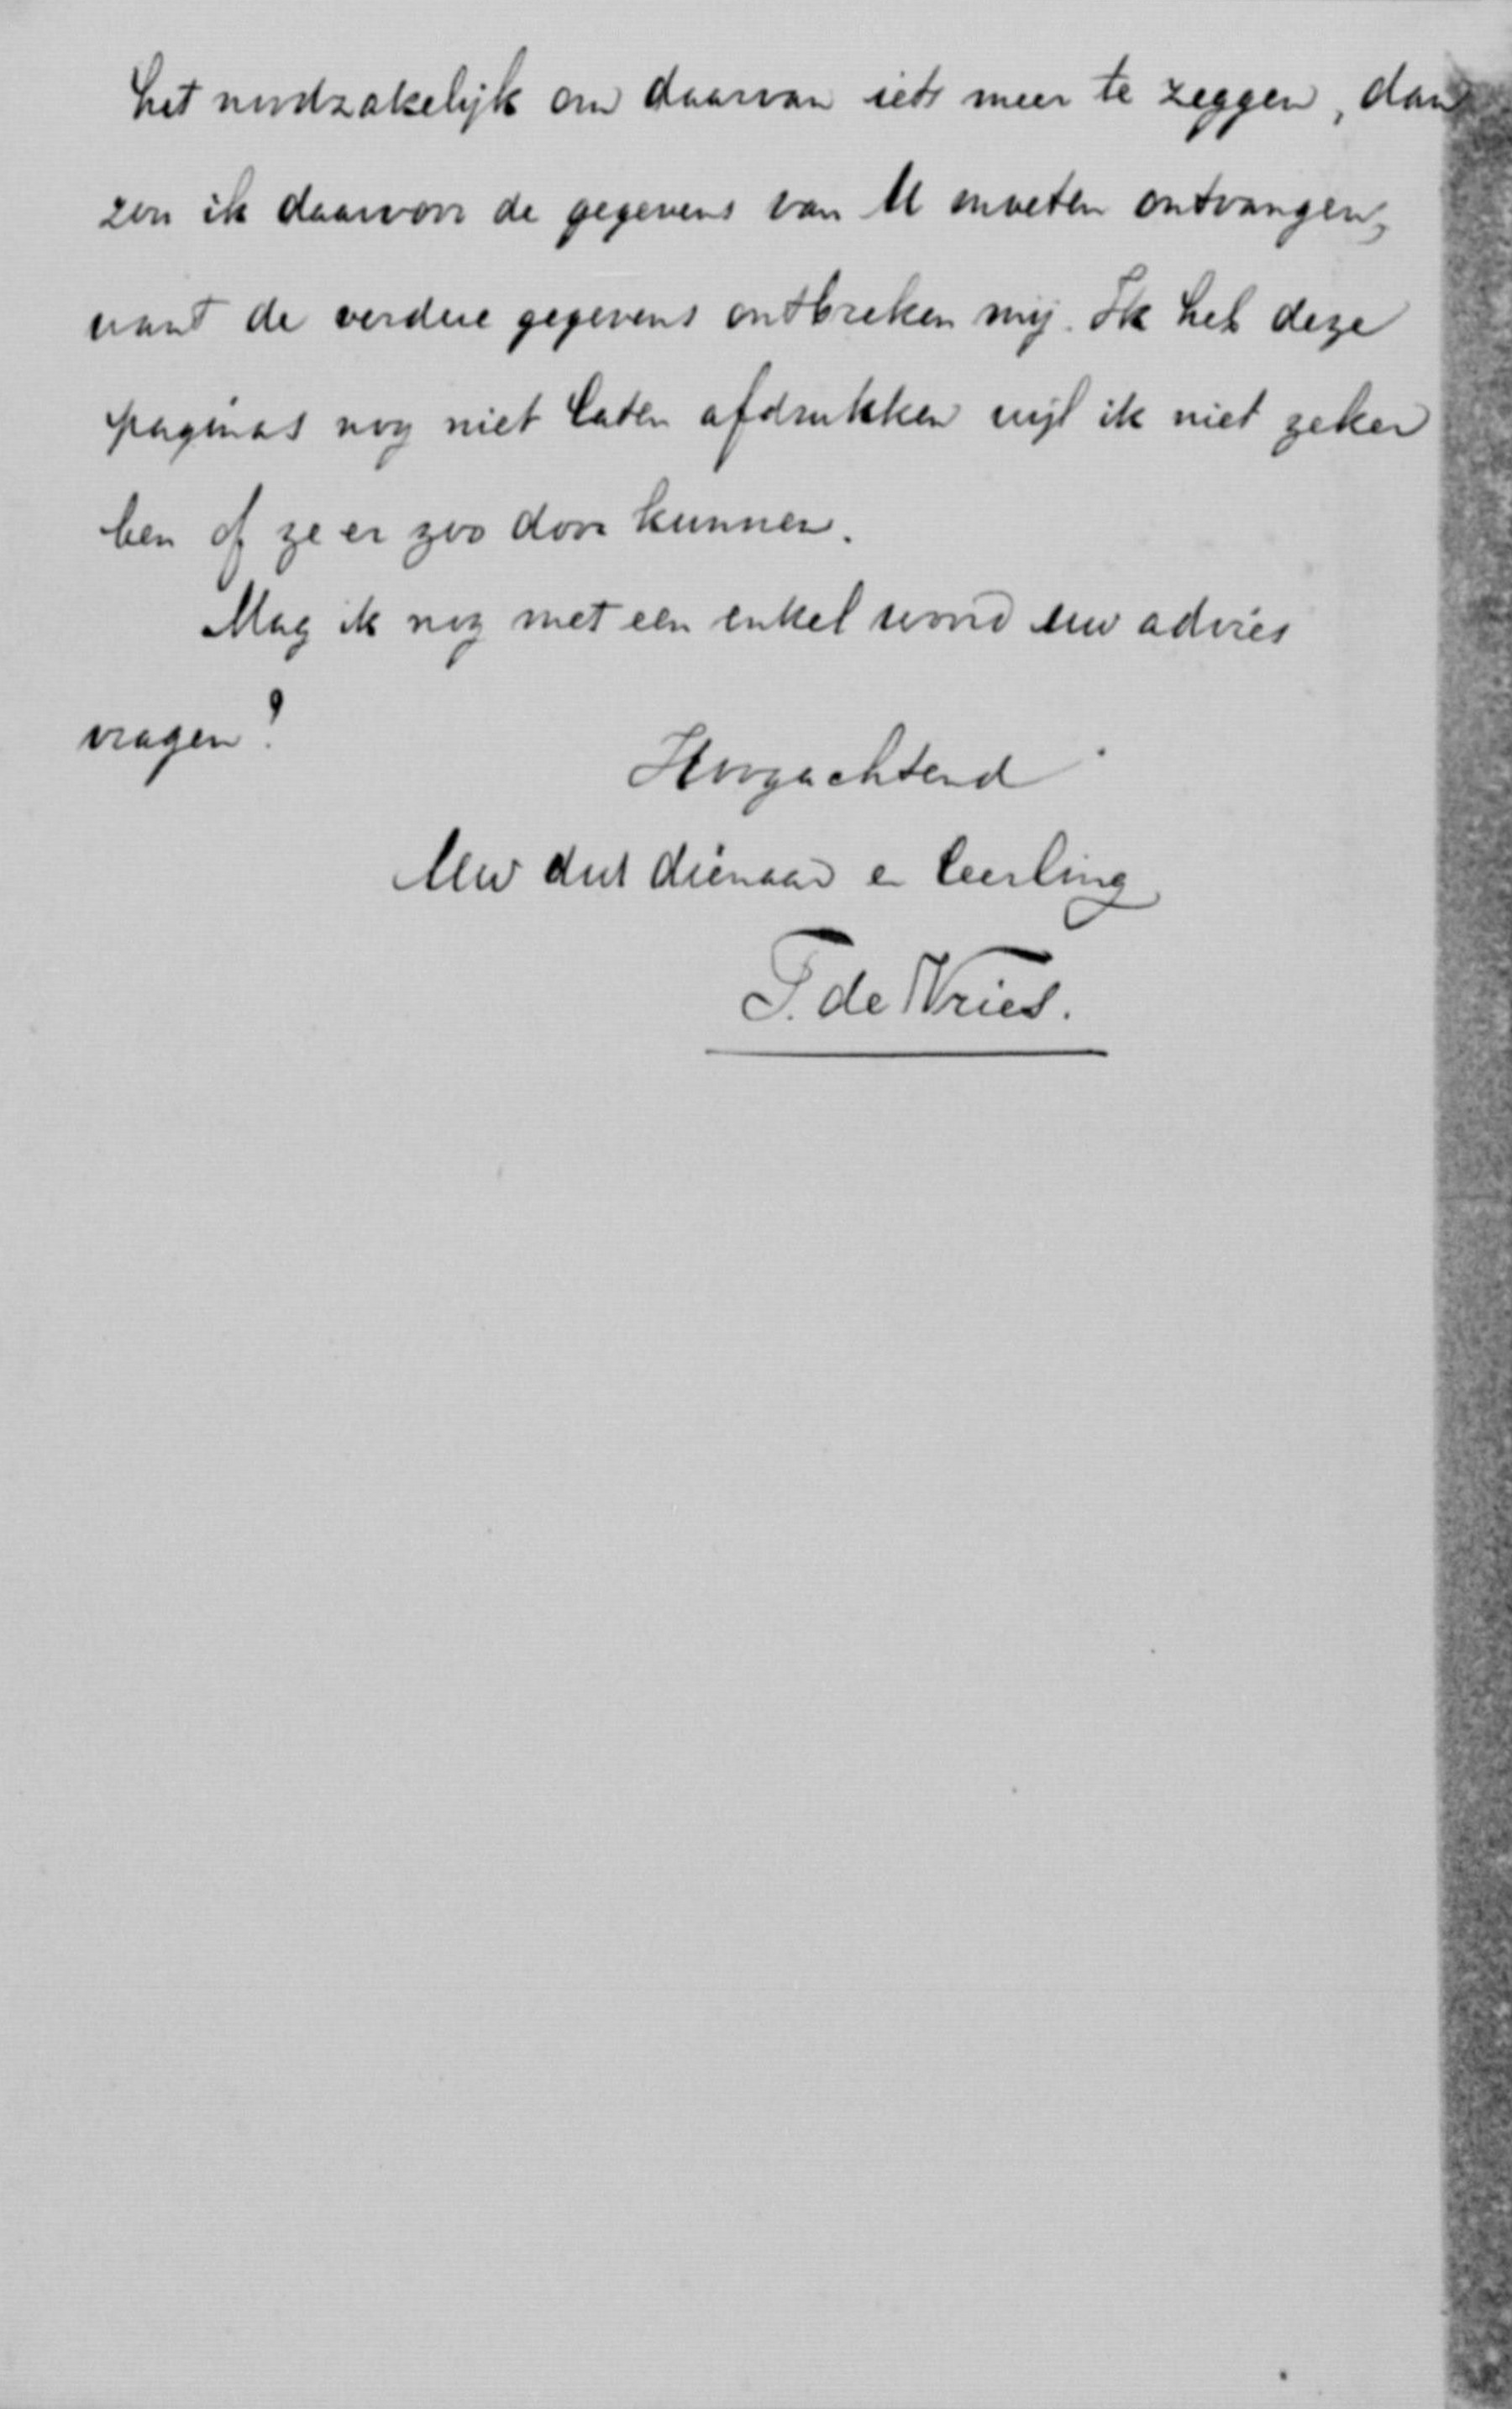 het noodzakelijk om daarvan iets meer te zeggen, dan
zou ik daarvoor de gegevens van U moeten ontvangen,
want de verdere gegevens ontbreken mij. Ik heb deze
paginas nog niet laten afdrukken wijl ik niet zeker
ben of ze er zoo door kunnen.
Mag ik nog met een enkel woord uw advies
vragen?
Hoogachtend
Uw dw dienaar en leerling
T. de Vries.